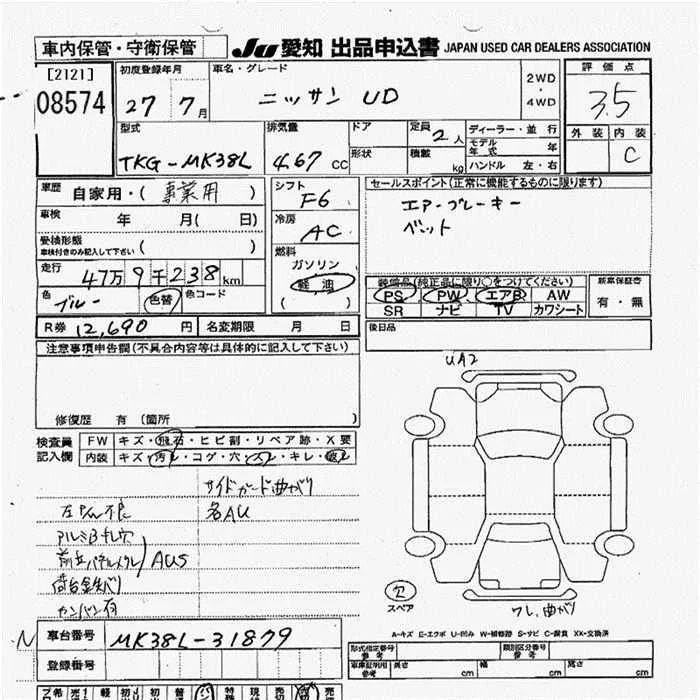 車内保管・守衛保管
JU 愛知 出品申込書 JAPAN USED CAR DEALERS ASSOCIATION
[2121]
08574
初度登録年月
27 7月
車名・グレード
ニッサン UD
2WD
・
4WD
評価点
3.5
外装 内装
C
型式
TKG-MK38L
排気量
4.67 cc
ドア
形状
定員
2人
積載
kg
ディーラー・並行
モデル年式 年
ハンドル 左・右
車歴 自家用・( 事業用 )
車検 年 月( 日)
受検形態
車検付きのみ記入して下さい ( )
走行 47万9千238km
色 ブルー 色替 色コード
シフト
F6
冷房
AC
燃料
ガソリン
軽油
( )
セールスポイント(正常に機能するものに限ります)
エアーブレーキー
ベット
装備品(純正品に限り○をつけてください)
PS PW エアB AW
SR ナビ TV カワシート
新車保証書
有・無
後日品
R券 12,690 円 名変期限 月 日
注意事項申告欄(不具合内容等は具体的に記入して下さい)
修復歴 有 (箇所 )
検査員
記入欄
FW キズ・飛石・ヒビ割・リペア跡・X要
内装 キズ・汚レ・コゲ・穴・スレ・キレ・破レ
サイドガード曲がり
各AU
アルミBナレ穴
AUS
カンバン有
UA2
スペア
ワレ,曲がり
A-キズ E-エクボ U-凹み W-補修跡 S-サビ C-腐食 XX-交換済
N
車台番号 MK38L-31879
登録番号
形式指定番号
参考
類別区分番号
参考
車庫証明用
参考
長さ cm 幅 cm 高さ cm